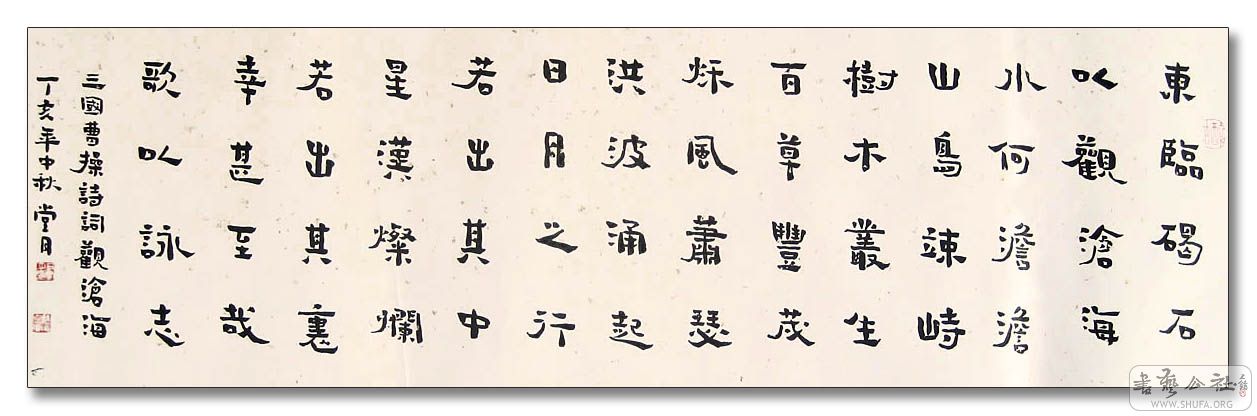 東臨碣石
以觀滄海
水何澹澹
山鳥竦峙
樹木叢生
百草豐茂
秌風蕭瑟
洪波涌起
日月之行
若出其中
星漢燦爛
若出其裏
幸甚至哉
歌以詠志
三國曹操詩詞觀滄海
丁亥年中秋 堂月
書藝公社
WWW.SHUFA.ORG